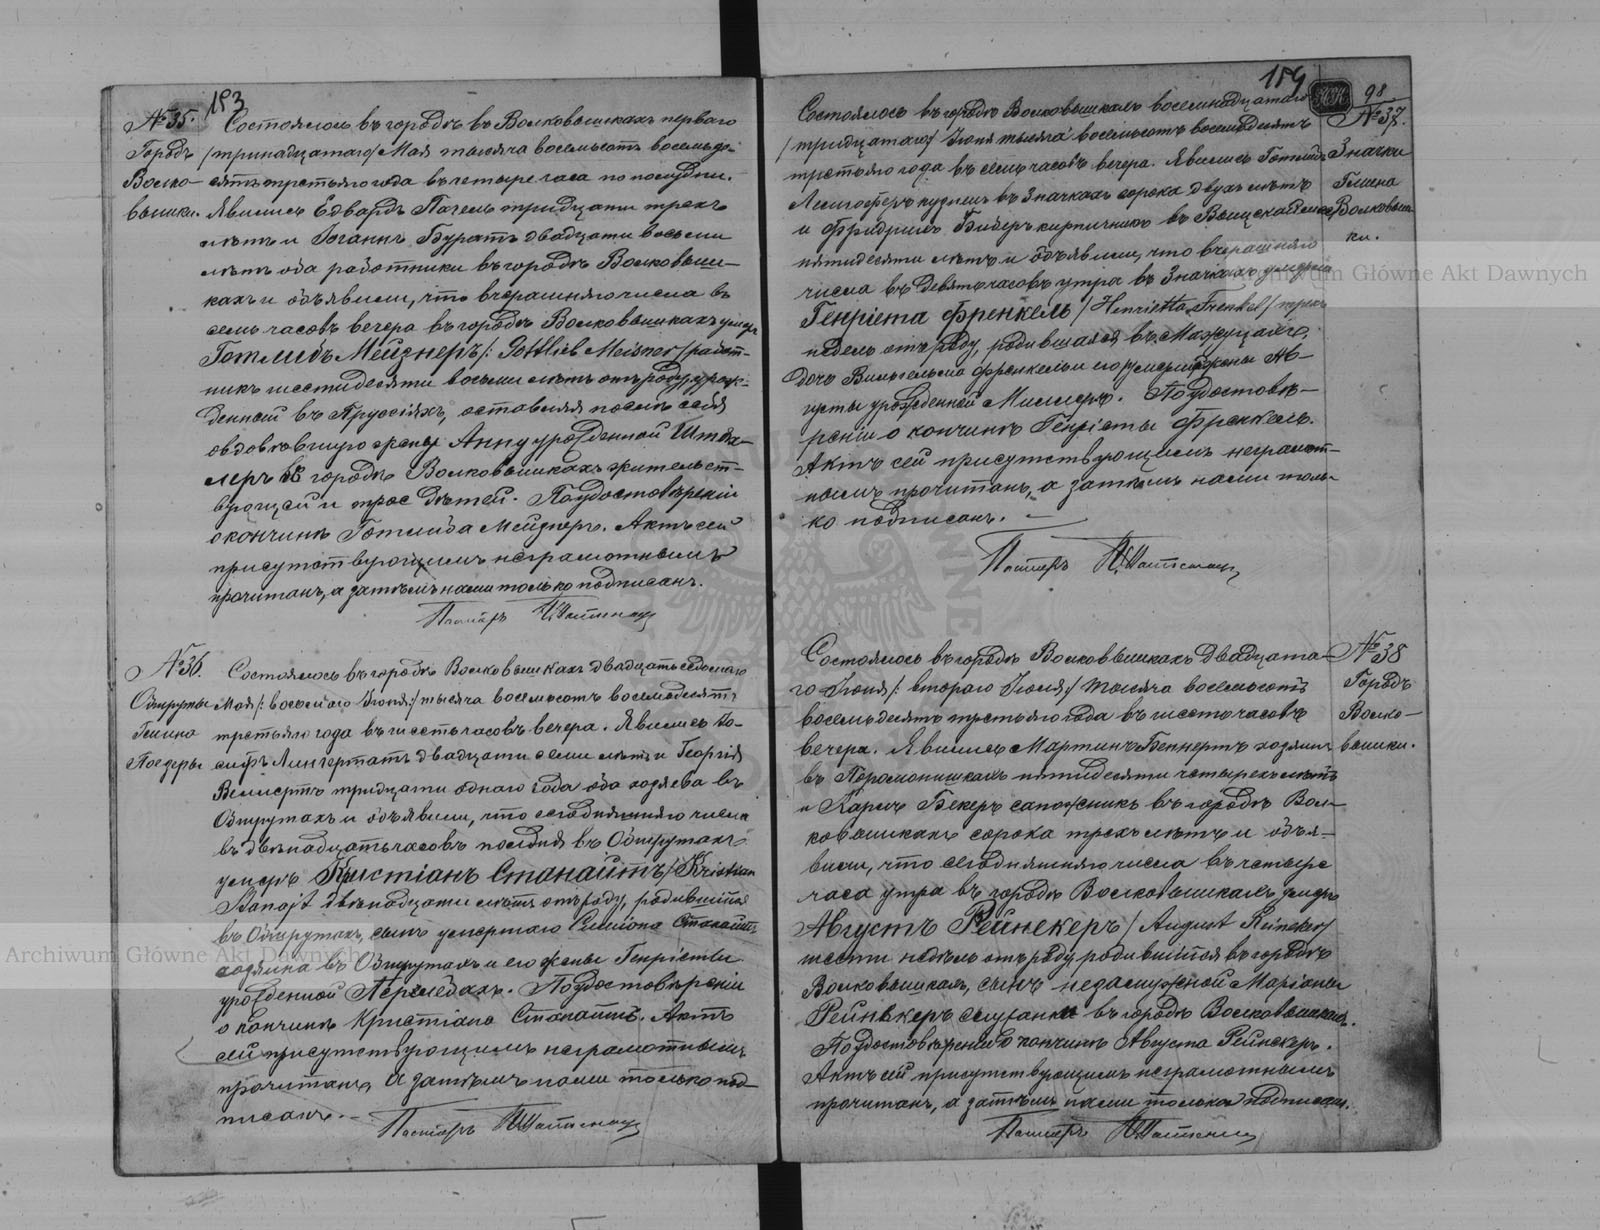 183
№ 35.
Городъ
Волко-
вышки.
Состоялось въ городѣ въ Волковышкахъ перваго
/тринадцатаго/ Мая тысяча восемьсотъ восемьде-
сятъ третьяго года въ четыре часа по полудни.
Явились Едвардъ Пагель тридцати трехъ
лѣтъ и Іоганнъ Буратъ двадцати восьми
лѣтъ оба работники въ городѣ Волковыш-
кахъ и объявили, что вчерашняго числа въ
семь часовъ вечера въ городѣ Волковышкахъ умеръ
Готлибъ Мейзнеръ /: Gottlieb Meisner/ работ-
никъ шестидесяти восьми лѣтъ отъ роду, рож-
денный въ Пруссіяхъ, оставляя послѣ себя
овдовѣвшую жену Анну урожденной Штве-
леръ въ городѣ Волковышкахъ жительст-
вующей и трое дѣтей. По удостовѣреніи
о кончинѣ Готлиба Мейзнеръ. Актъ сей
присутствующимъ неграмотнымъ
прочитанъ, а затѣмъ нами только подписанъ.
Пасторъ
№ 36.
Обшруты
Гмина
Поезеры
Состоялось въ городѣ Волковышкахъ двадцать седьмаго
Мая /: восьмаго Іюня :/ тысяча восемьсотъ восемьдесятъ
третьяго года въ шесть часовъ вечера. Явились Іо-
сифъ Лингертатъ двадцати семи лѣтъ и Георгій
Веммертъ тридцати одного года оба хозяева въ
Обшрутахъ и объявили, что сегодняшняго числа
въ двѣнадцать часовъ полдня въ Обшрутахъ
умеръ Кристіанъ Станайтъ /Kristian
Stanajt двѣнадцати лѣтъ отъ роду, родившійся
въ Обшрутахъ, сынъ умершаго Симона Станайтъ
хозяина въ Обшрутахъ и его жены Генріеты
урожденной Пермедахъ. По удостовѣреніи
о кончинѣ Кристіана Станайтъ. Актъ
сей присутствующимъ неграмотнымъ
прочитанъ, а затѣмъ нами только под-
писанъ. —
Пасторъ
184
98
№ 37.
Значки
Гмина
Волковыш-
ки.
Состоялось въ городѣ Волковышкахъ восемнадцатаго
/тридцатаго/ Іюня тысяча восемьсотъ восемьдесятъ
третьяго года въ семь часовъ вечера. Явились Готлибъ
въ Значкахъ сорока двухъ лѣтъ
и Фридрихъ Биберъ кирпичникъ въ
пятидесяти лѣтъ и объявили, что вчерашняго
числа въ девять часовъ утра въ Значкахъ умерла
Генріета Френкель /Henrietta Frenkel/ трехъ
недель отъ роду, родившаяся въ
дочь Вильгельма Френкель и его умершей жены Ав-
густы урожденной Миллеръ. По удостовѣ-
реніи о кончинѣ Генріеты Френкель.
Актъ сей присутствующимъ неграмот-
нымъ прочитанъ, а затѣмъ нами толь-
ко подписанъ. —
Пасторъ
№ 38
Городъ
Волко-
вышки.
Состоялось въ городѣ Волковышкахъ двадцата-
го Іюня /: втораго Іюля :/ тысяча восемьсотъ
восемьдесятъ третьяго года въ шесть часовъ
вечера. Явились Мартинъ Беннертъ хозяинъ
въ пятидесяти четырехъ лѣтъ
и Карлъ Бекеръ сапожникъ въ городѣ Вол-
ковышкахъ сорока трехъ лѣтъ и объя-
вили, что сегодняшняго числа въ четыре
часа утра въ городѣ Волковышкахъ умеръ
Августъ Рейнекеръ /August Reineker/
шести недѣль отъ роду родившійся въ городѣ
Волковышкахъ, сынъ незамужной Маріаны
Рейнекеръ служанки въ городѣ Волковышкахъ.
По удостовѣреніи о кончинѣ Августа Рейнекеръ.
Актъ сей присутствующимъ неграмотнымъ
прочитанъ, а затѣмъ нами только подписанъ.
Пасторъ
Archiwum Główne Akt Dawnych
Archiwum Główne Akt Dawnych